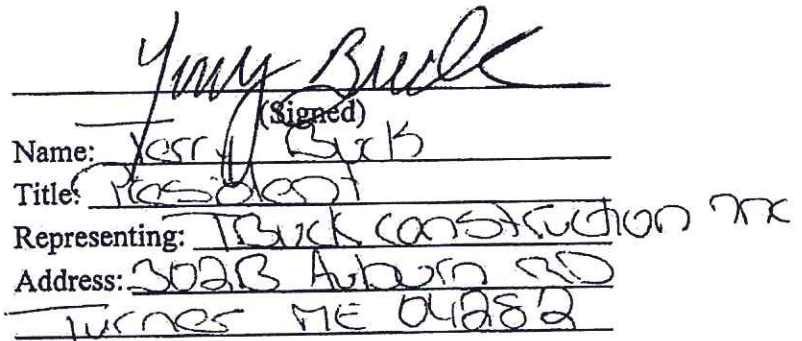 Terry Buck
(Signed)
Name: Terry Buck
Title: President
Representing: T Buck Construction Inc
Address: 302B Auburn RD
Turner ME 04282